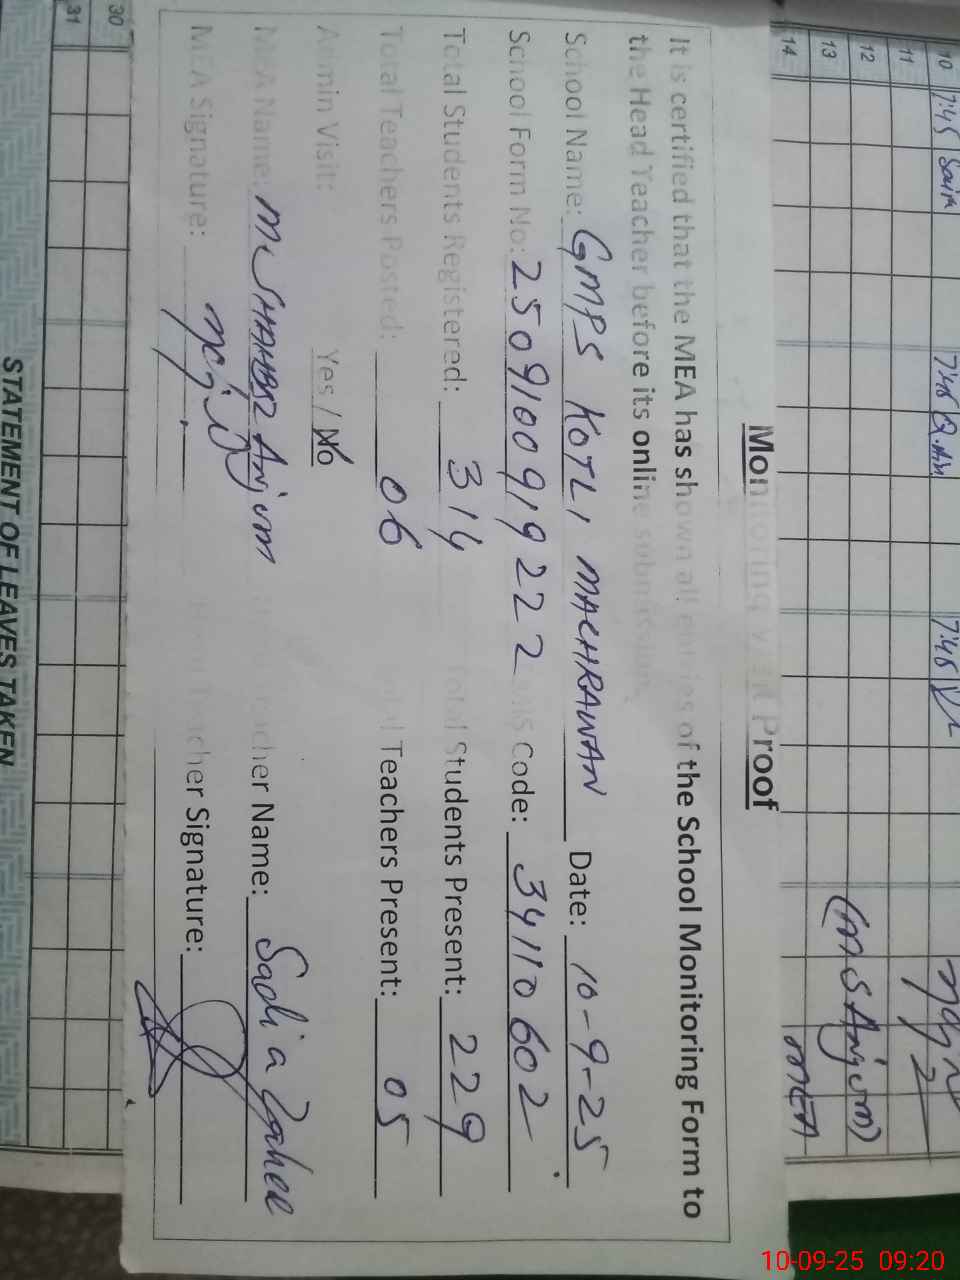 Monitoring Visit Proof
It is certified that the MEA has shown all entries of the School Monitoring Form to
the Head Teacher before its online submission.
School Name: GMPS KOTLI MACHRAWAN Date: 10-9-25
School Form No: 2509100919222 Code: 34110602
Total Students Registered: 314 Total Students Present: 229
Total Teachers Posted: 06 Total Teachers Present: 05
Admin Visit: Yes / No
MEA Name: M SHAHBAZ Anjum Teacher Name: Sadia
MEA Signature: Teacher Signature:
10 7:45 7:45 7:45
11
12 (M S Anjum)
13 MEA
14
30
31
STATEMENT OF LEAVES TAKEN
10-09-25 09:20